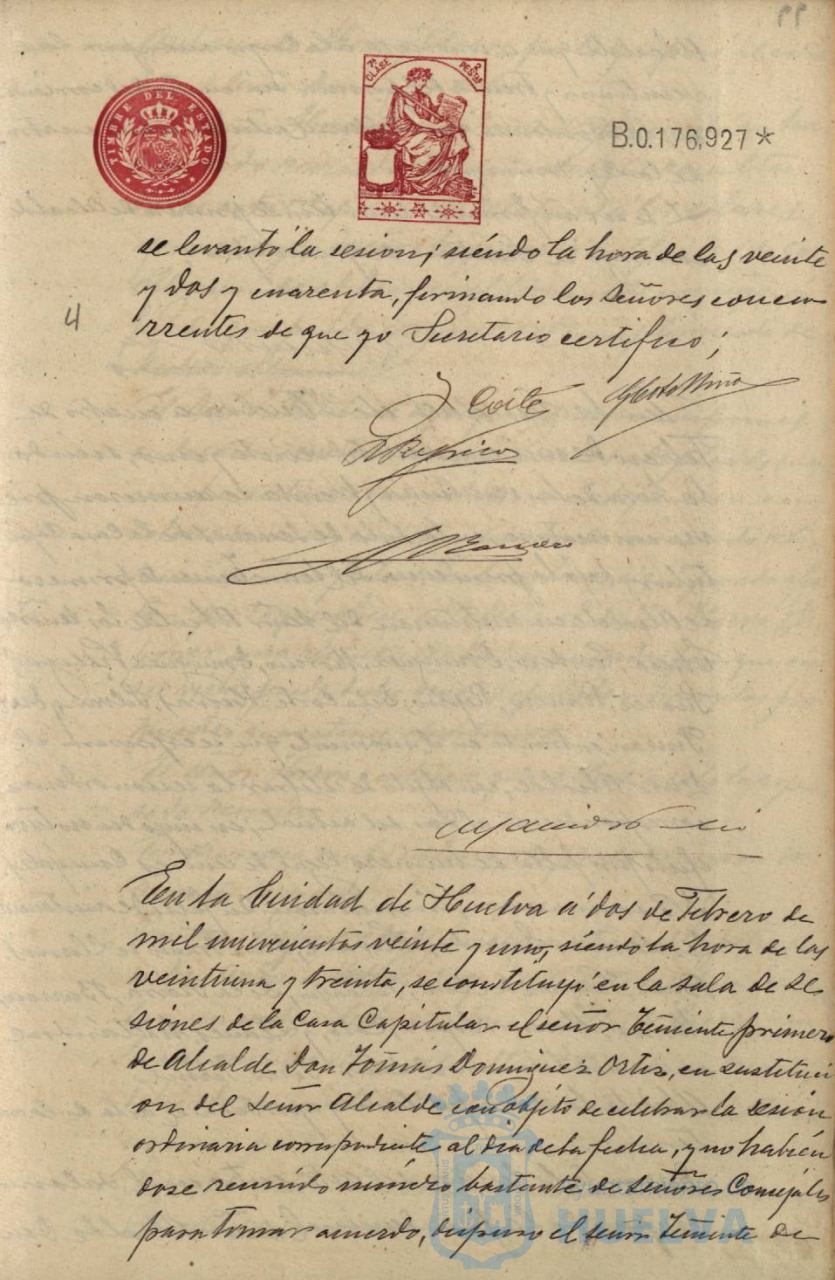 99
TIMBRE DEL ESTADO
7ª CLASE 2 PESTAS
B.0.176,927*
se levantó la sesion; siéndo la hora de las veinte
y dos y cuarenta, firmando los señores concu
4
rrentes de que yo Secretario certifico;
En la Ciudad de Huelva á dos de Febrero de
mil novecientos veinte y uno, siéndo la hora de las
veintiuna y treinta, se constituyó en la sala de se
siones de la Casa Capitular el señor Teniente primero
de Alcalde Don Tomás Dominguez Ortiz, en sustituci
on del señor Alcalde con objeto de celebrar la sesión
ordinaria correspondiente al dia de la fecha, y no habién
dose reunido número bastante de señores Concejales
para tomar acuerdo, dispuso el señor Teniente de
HUELVA